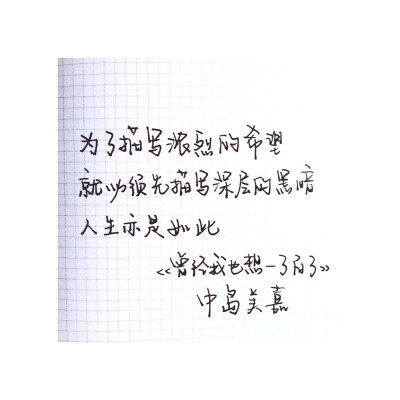 为了描写浓烈的希望
就必须先描写深层的黑暗
人生亦是如此
《曾经我也想一了百了》
中岛美嘉